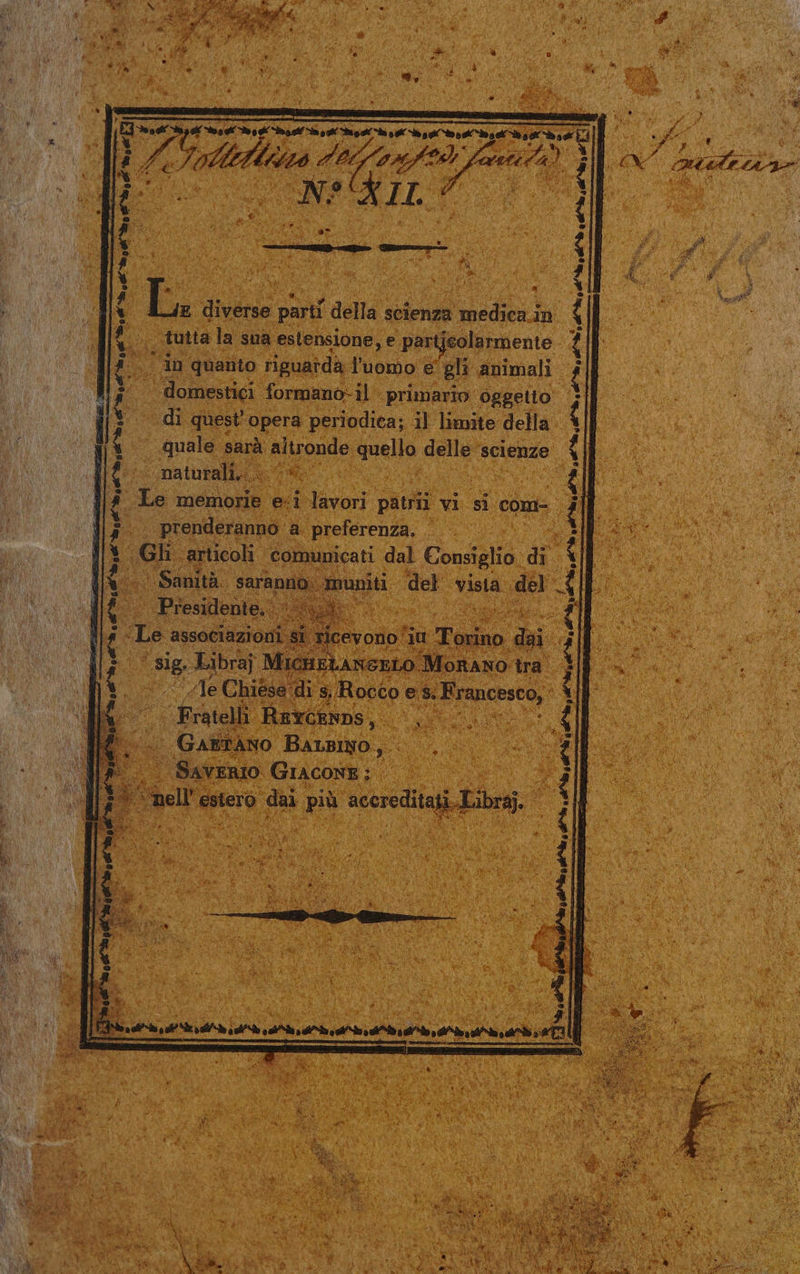 N.º XII.
Le diverse parti della scienza medica in
tutta la sua estensione, e particolarmente
in quanto riguarda l'uomo e gli animali
domestici formano il primario oggetto
di quest'opera periodica; il limite della
quale sarà altronde quello delle scienze
naturali.
Le memorie e i lavori patrii vi si com-
prenderanno a preferenza.
Gli articoli comunicati dal Consiglio di
Sanità saranno muniti del vista del
Presidente.
Le associazioni si ricevono in Torino dai
sig. Libraj MICHELANGELO MORANO tra
le Chiese di s. Rocco e s. Francesco,
Fratelli REYCENDS,
GAETANO BALBINO,
SAVERIO GIACONE;
nell'estero dai più accreditati Libraj.